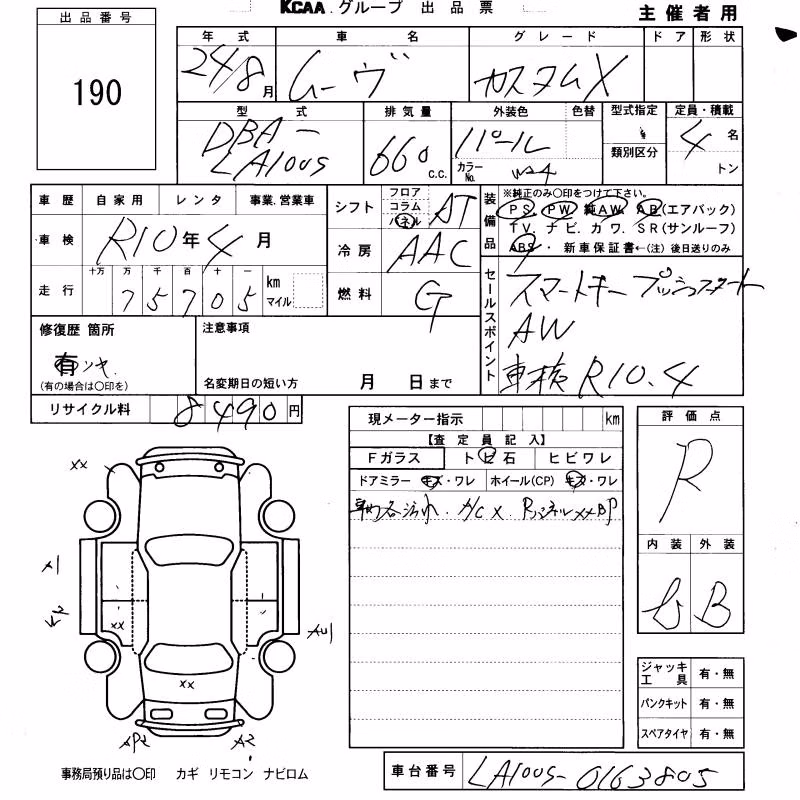 KCAA.グループ 出品票
主催者用
出品番号
190
年式 車名 グレード ドア 形状
24/8月 ムーヴ カスタムX
型式 排気量 外装色 色替 型式指定 定員・積載
DBA-LA100S 660 c.c. パール カラーNo. W24 類別区分 4名 トン
車歴 自家用 レンタ 事業.営業車
車検 R10年4月
走行 十万 万 千 百 十 一
75705 km マイル
シフト フロア コラム パネル AT
冷房 AAC
燃料 G
装備品 ※純正のみ〇印をつけて下さい。
PS. PW. 純AW. AB(エアバック)
TV. ナビ. カワ. SR(サンルーフ)
ABS・ ・新車保証書←(注)後日送りのみ
セールスポイント
スマートキー プッシュスタート
AW
車検R10.4
修復歴 箇所
有
(有の場合は〇印を)
注意事項
名変期日の短い方 月 日まで
リサイクル料 8490円
現メーター指示 km
【査定員記入】
Fガラス トビ石 ヒビワレ
ドアミラー キズ・ワレ ホイール(CP) キズ・ワレ
評価点
R
内装 外装
B
ジャッキ工具 有・無
パンクキット 有・無
スペアタイヤ 有・無
xx
A1
xx
AU1
xx
AP2
A2
事務局預り品は〇印 カギ リモコン ナビロム
車台番号 LA100S-0163805